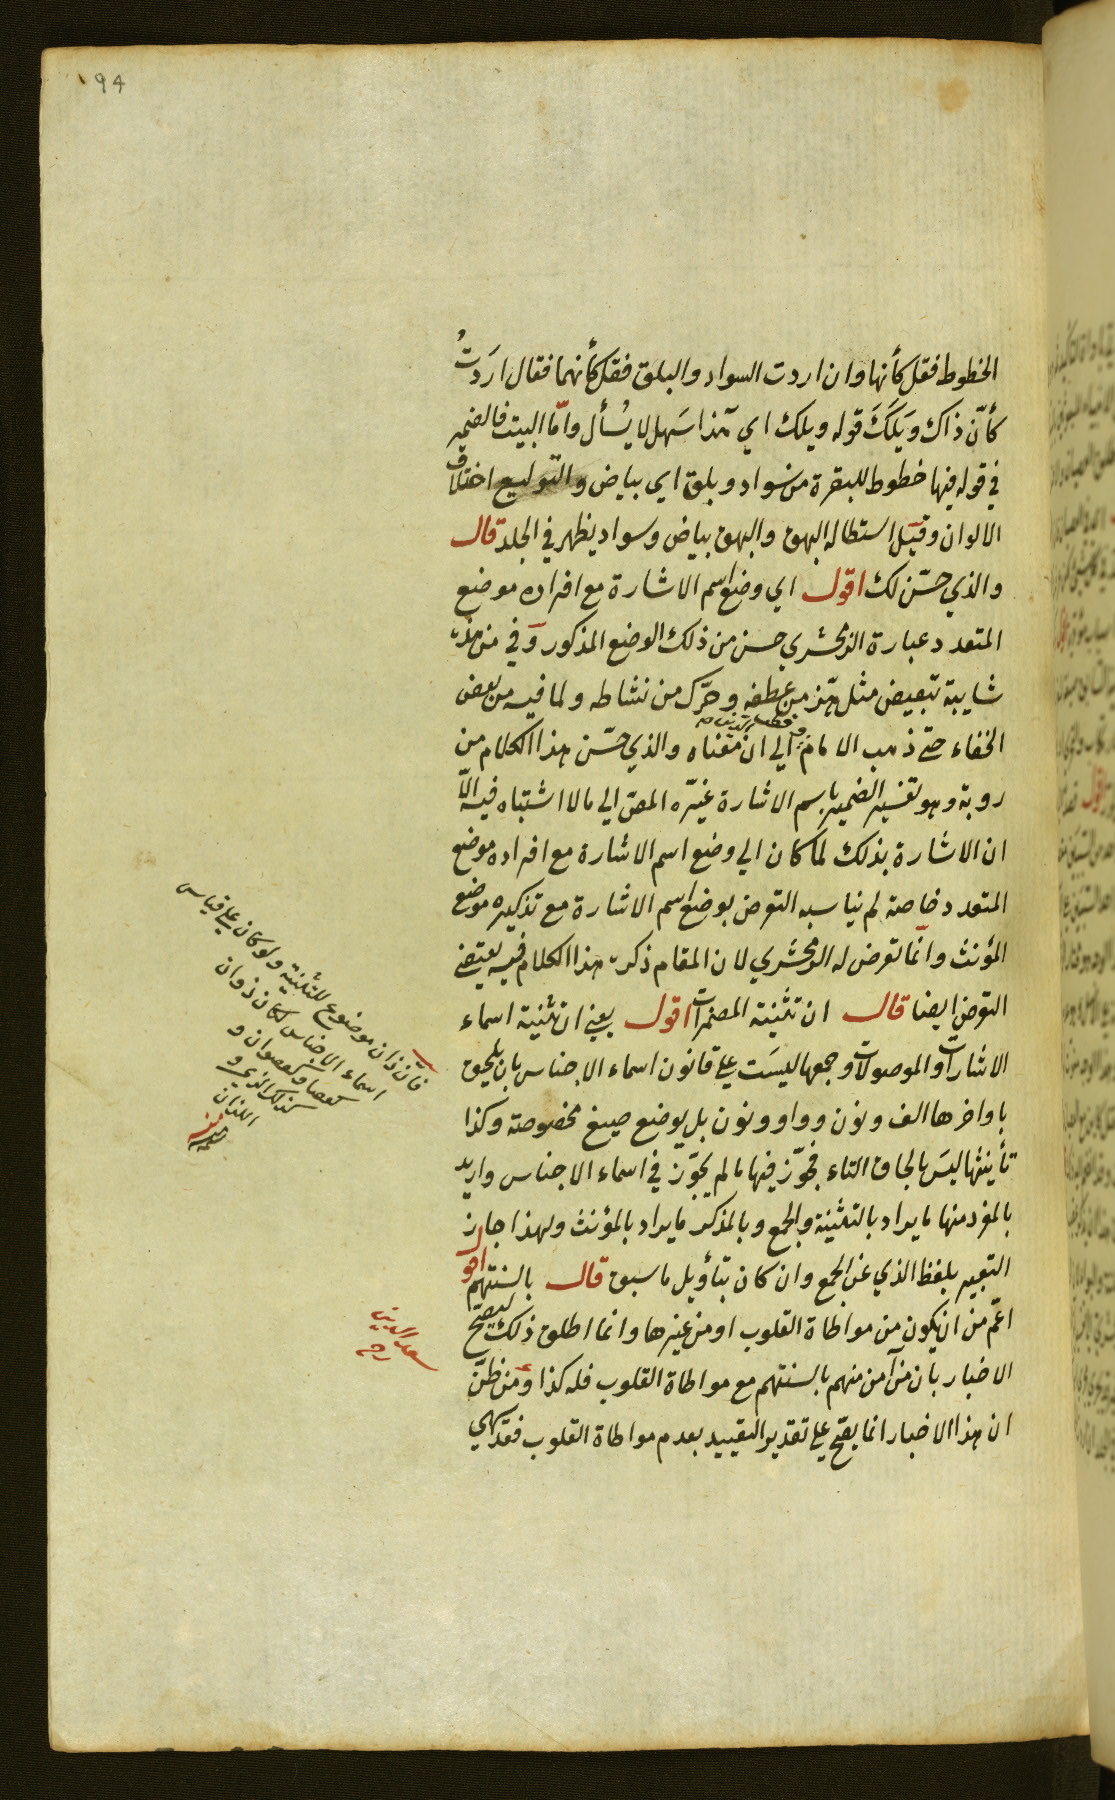 94
الخطوط فقل كأنها وان اردت السواد والبلق فقل كأنهما فقال اَرَدتُ
كأنّ ذاك وَيلَكَ قوله ويلك اي هذا سَهل لا يُسأل وامّا البيت فالضمير
في قوله فيها خطوط للبقرة من سواد وبلق اي بياض والتوليع اختلاف
الالوان وقيل استطالة البهق والبهق بياض وسواد يظهر في الجلد قال
والذي حسّن لك اقول اي وضع اسم الاشارة مع افراده موضع
المتعدد عبارة الزمخشري حسن من ذلك الوضع المذكور وفي من هذه
شايبة تبعيض مثل هزّ من عِطفه وحرّك من نشاطه ولما فيه من بعض
الخفاء حتى ذهب الامام الي ان معناه والذي حسّن هذا الكلام من
روبة وهو تفسير الضمير باسم الاشارة غيّره المص الي ما لا اشتباه فيه الّا
ان الاشارة بذلك لمّا كان الي وضع اسم الاشارة مع افراده موضع
المتعدد خاصة لم يناسبه التعرض بوضع اسم الاشارة مع تذكيره موضع
المؤنث وانّما تعرض له الزمخشري لان المقام ذكره هذا الكلام فيه يقتضي
التعرض ايضا قال ان تثنية المضمرات اقول يعني ان تثنية اسماء
الاشارات والموصولات وجمعها ليسَت علي قانون اسماء الاجناس بان يلحق
باواخرها الف ونون وواو ونون بل يوضع صيغ مخصوصة وكذا
تأنيثها ليسَ بالحاق التاء فجوّز فيها ما لم يجوّز في اسماء الاجناس واريد
بالمفرد منها ما يراد بالتثنية والجمع وبالمذكر ما يراد بالمؤنث ولهذا جاز
التعبير بلفظ الذي عن الجمع وان كان بتأويل ما سبق قال بالسنتهم اقول
اعمّ من ان يكون من مواطاة القلوب او من غيرها وانما اطلق ذلك ليصحّ
الاخبار بان من آمن منهم بالسنتهم مع مواطاة القلوب فله كذا ومن ظنّ
ان هذا الاخبار انما يصحّ علي تقدير التقييد بعدم مواطاة القلوب فقد سهي
فان ذان موضوع للتثنية ولو كان علي قياس
اسماء الاجناس لكان ذوان
كعصا وعصوان و
كذلك الذي و
اللذان
منه
سعد الدين
رح